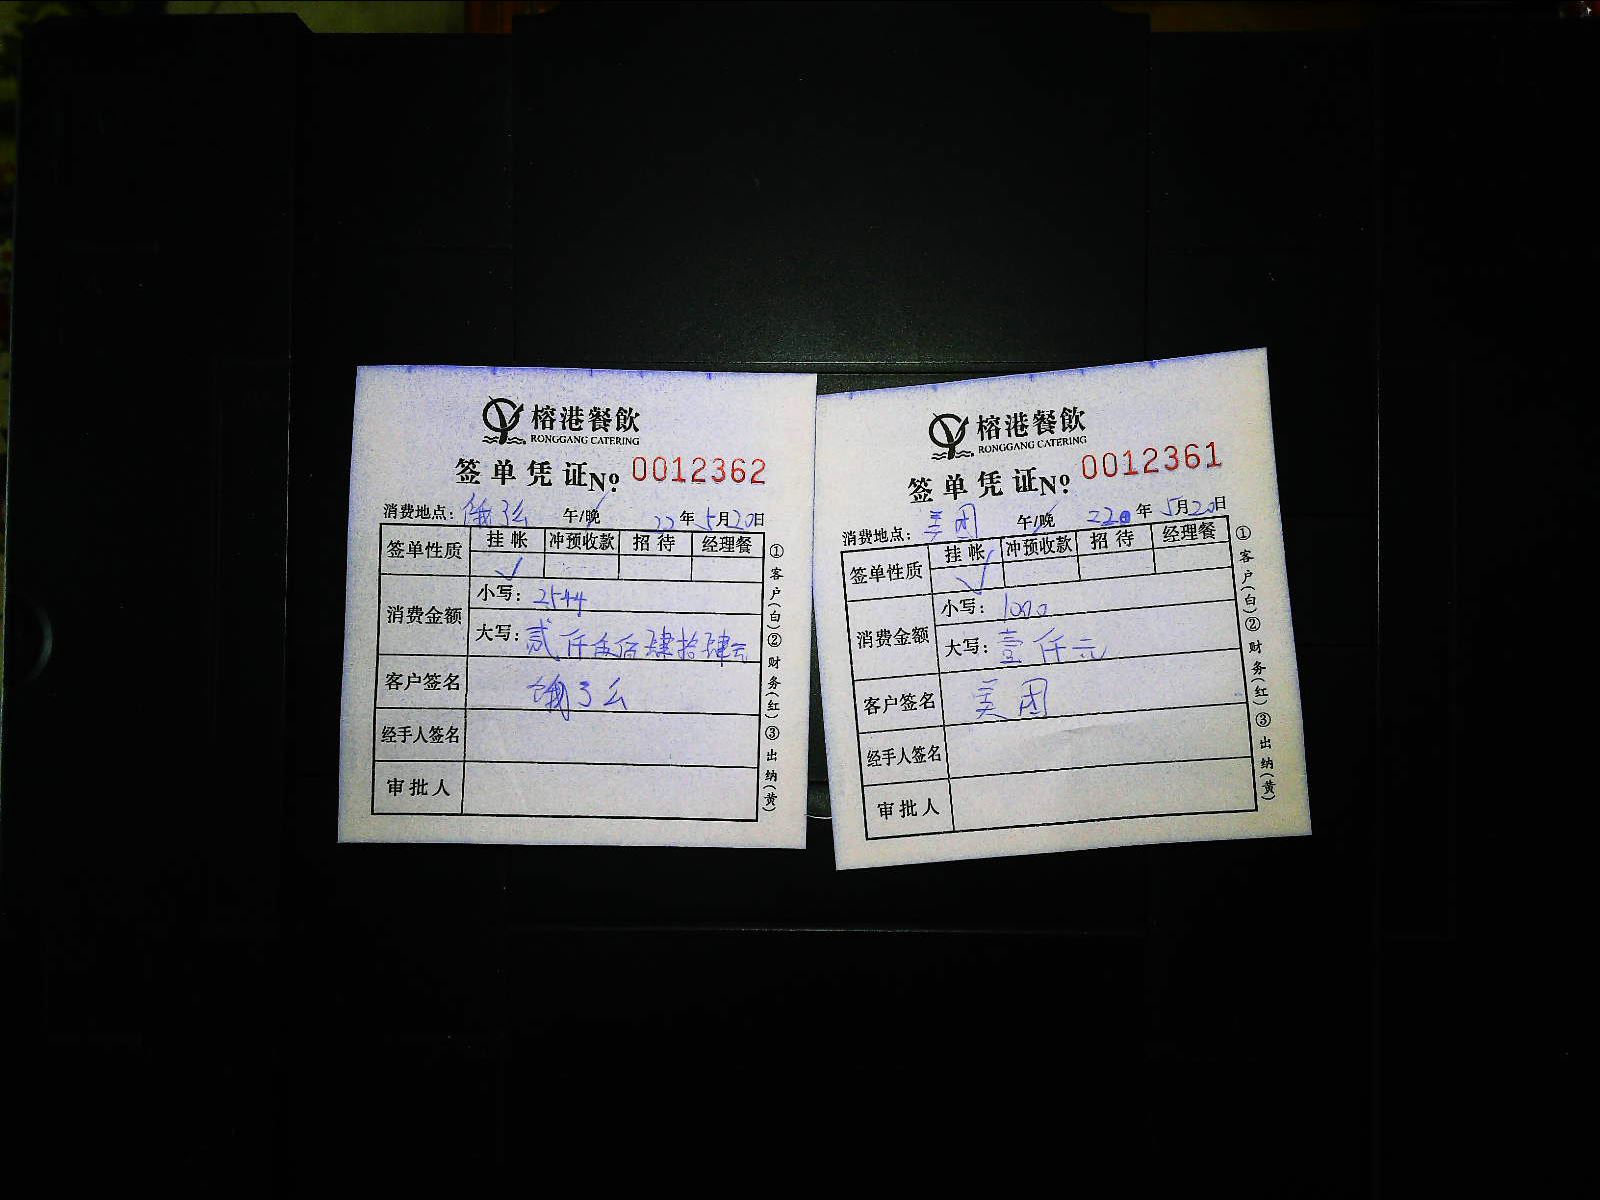 榕港餐飲
RONGGANG CATERING
签单凭证 No. 0012362
消费地点：饿了么 午/晚 22年5月20日
签单性质 挂帐 冲预收款 招待 经理餐
✓
消费金额 小写：2544
大写：贰仟伍佰肆拾肆元
客户签名 饿了么
经手人签名
审批人
①客户(白)②财务(红)③出纳(黄)
榕港餐飲
RONGGANG CATERING
签单凭证 No. 0012361
消费地点：美团 午/晚 年5月20日
签单性质 挂帐 冲预收款 招待 经理餐
✓
消费金额 小写：1000
大写：壹仟元
客户签名 美团
经手人签名
审批人
①客户(白)②财务(红)③出纳(黄)